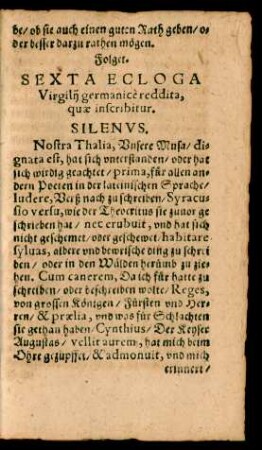 be/ ob sie auch einen guten Rath geben/ o⸗
der besser darzu rathen mögen.
Folget.
SEXTA ECLOGA
Virgilij germanicè reddita,
quæ inscribitur.
SILENVS.
Nostra Thalia, Vnsere Musa/ dig
nata est, hat sich vnterstanden/ oder hat
sich wirdig geachtet/ prima, für allen an
dern Poeten in der lateinischen Sprache/
ludere, Verß nach zu schreiben/ Syracu
sio versu, wie der Theocritus sie zuuor ge
schrieben hat/ nec erubuit, vnd hat sich
nicht geschemet/ oder geschewet/ habitare
syluas, aldere vnd bewrische ding zu schrei
ben/ oder in den Wälden herümb zu zie⸗
hen. Cum canerem, Da ich für hatte zu
schreiben/ oder beschreiben wolte/ Reges,
von grossen Königen/ Fürsten vnd Her⸗
ren/ & prælia, vnd was für Schlachten
sie gethan haben/ Cynthius/ Der Keyser
Augustus/ vellit aurem, hat mich beim
Ohre gezüpffet/ & admonuit, vnd mich
erinnert/